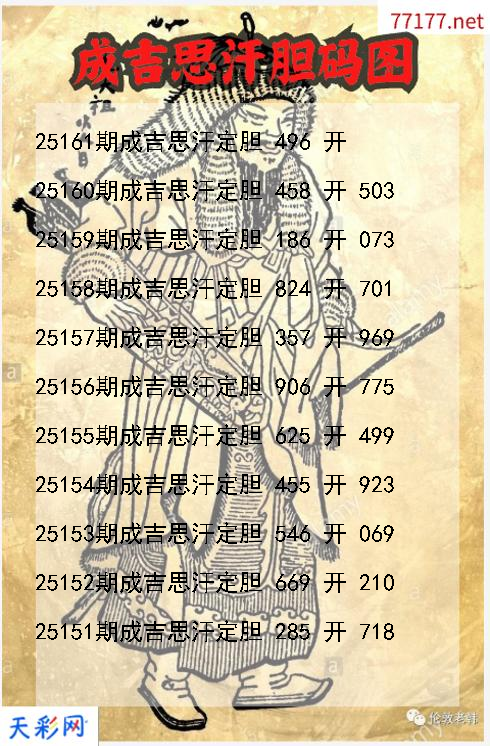 77177.net
成吉思汗胆码图
太祖
25161期成吉思汗定胆 496 开
25160期成吉思汗定胆 458 开 503
25159期成吉思汗定胆 186 开 073
25158期成吉思汗定胆 824 开 701
25157期成吉思汗定胆 357 开 969
25156期成吉思汗定胆 906 开 775
25155期成吉思汗定胆 625 开 499
25154期成吉思汗定胆 455 开 923
25153期成吉思汗定胆 546 开 069
25152期成吉思汗定胆 669 开 210
25151期成吉思汗定胆 285 开 718
天彩网
伦敦老韩